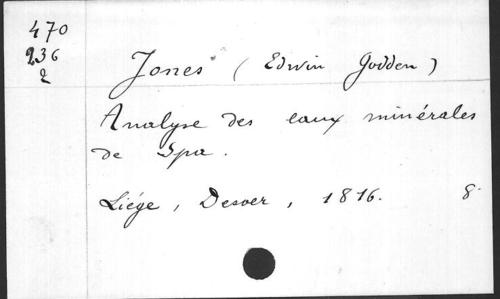 470
236
2
Jones (Edwin Godden)
Analyse des eaux minérales
de Spa.
Liége, Desoer, 1816. 8.